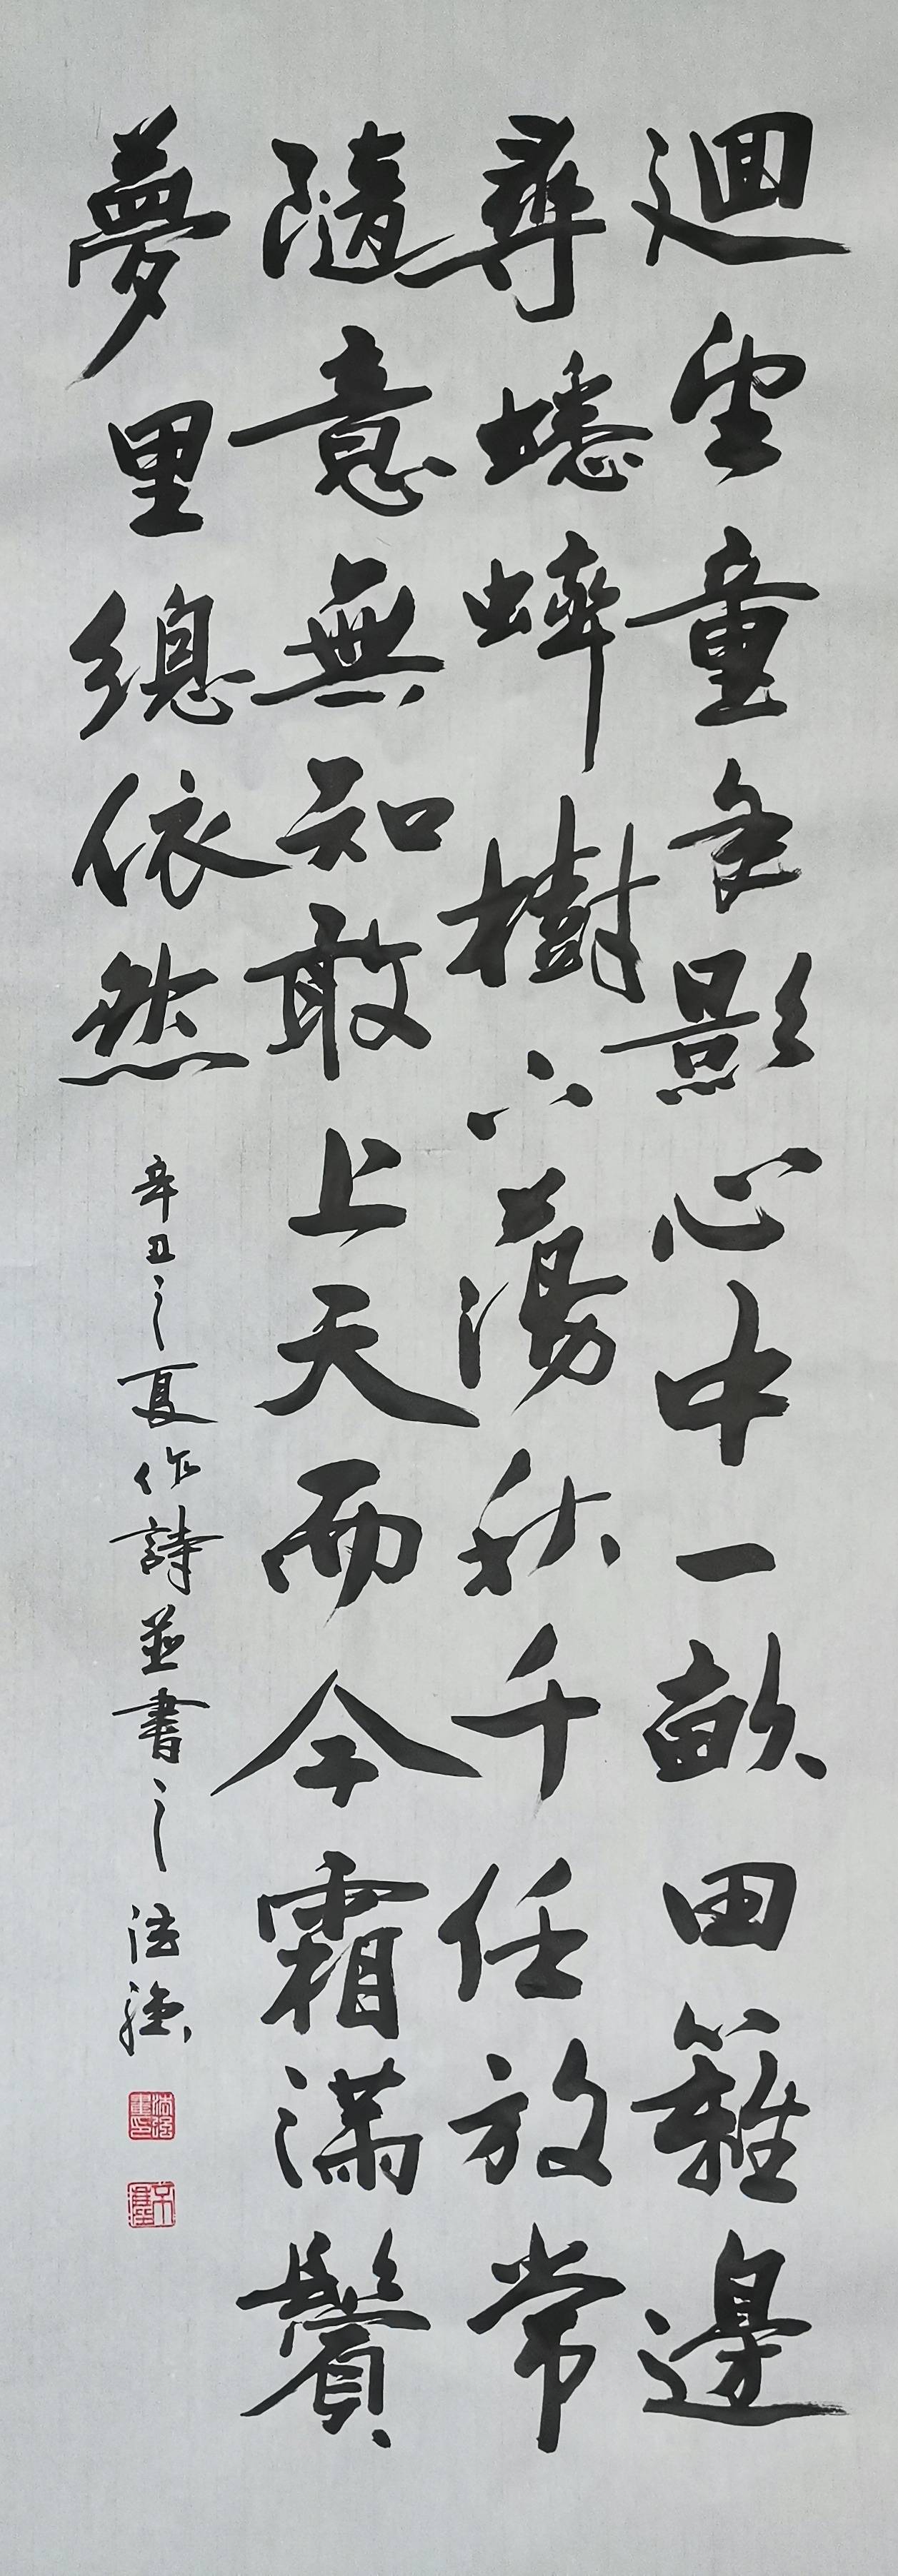 迴望童年影心中一畝田籬邊
尋蟋蟀樹下蕩秋千任放常
隨意無知敢上天而今霜滿鬢
夢里總依然
辛丑之夏作詩並書之法強